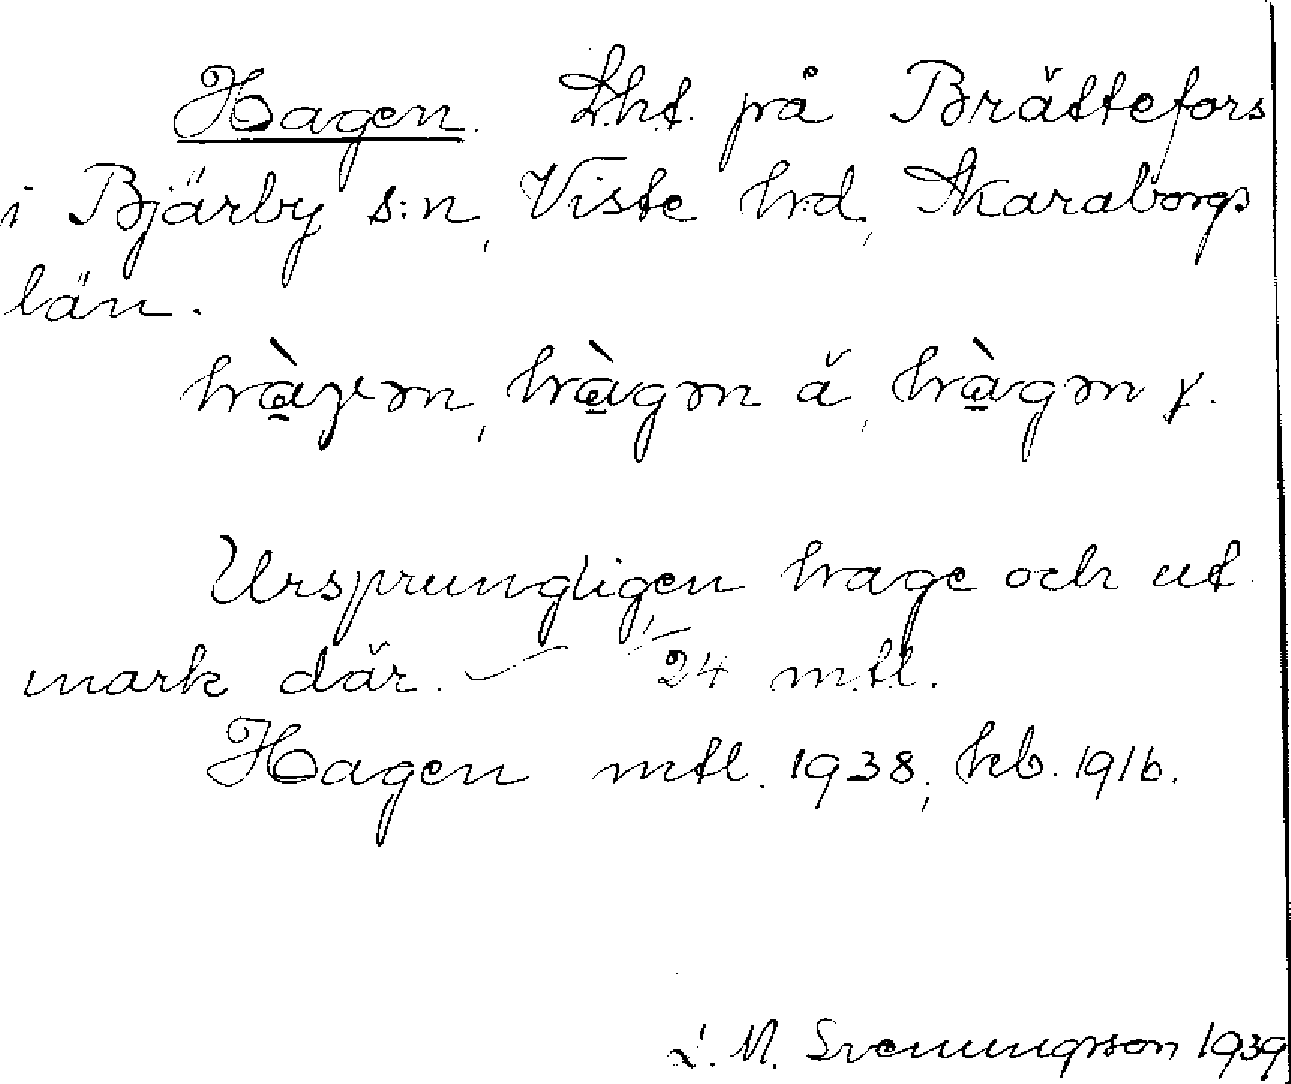 Hagen. Lht. på Brättefors
i Bjärby s:n, Viste hd, Skaraborgs
län.
hàgən, hàgən ä, hàgən y.
Ursprungligen hage och ut
mark där. — 1/24 mtl.
Hagen mtl. 1938; kb. 1916.
L. M. Svenungsson 1939